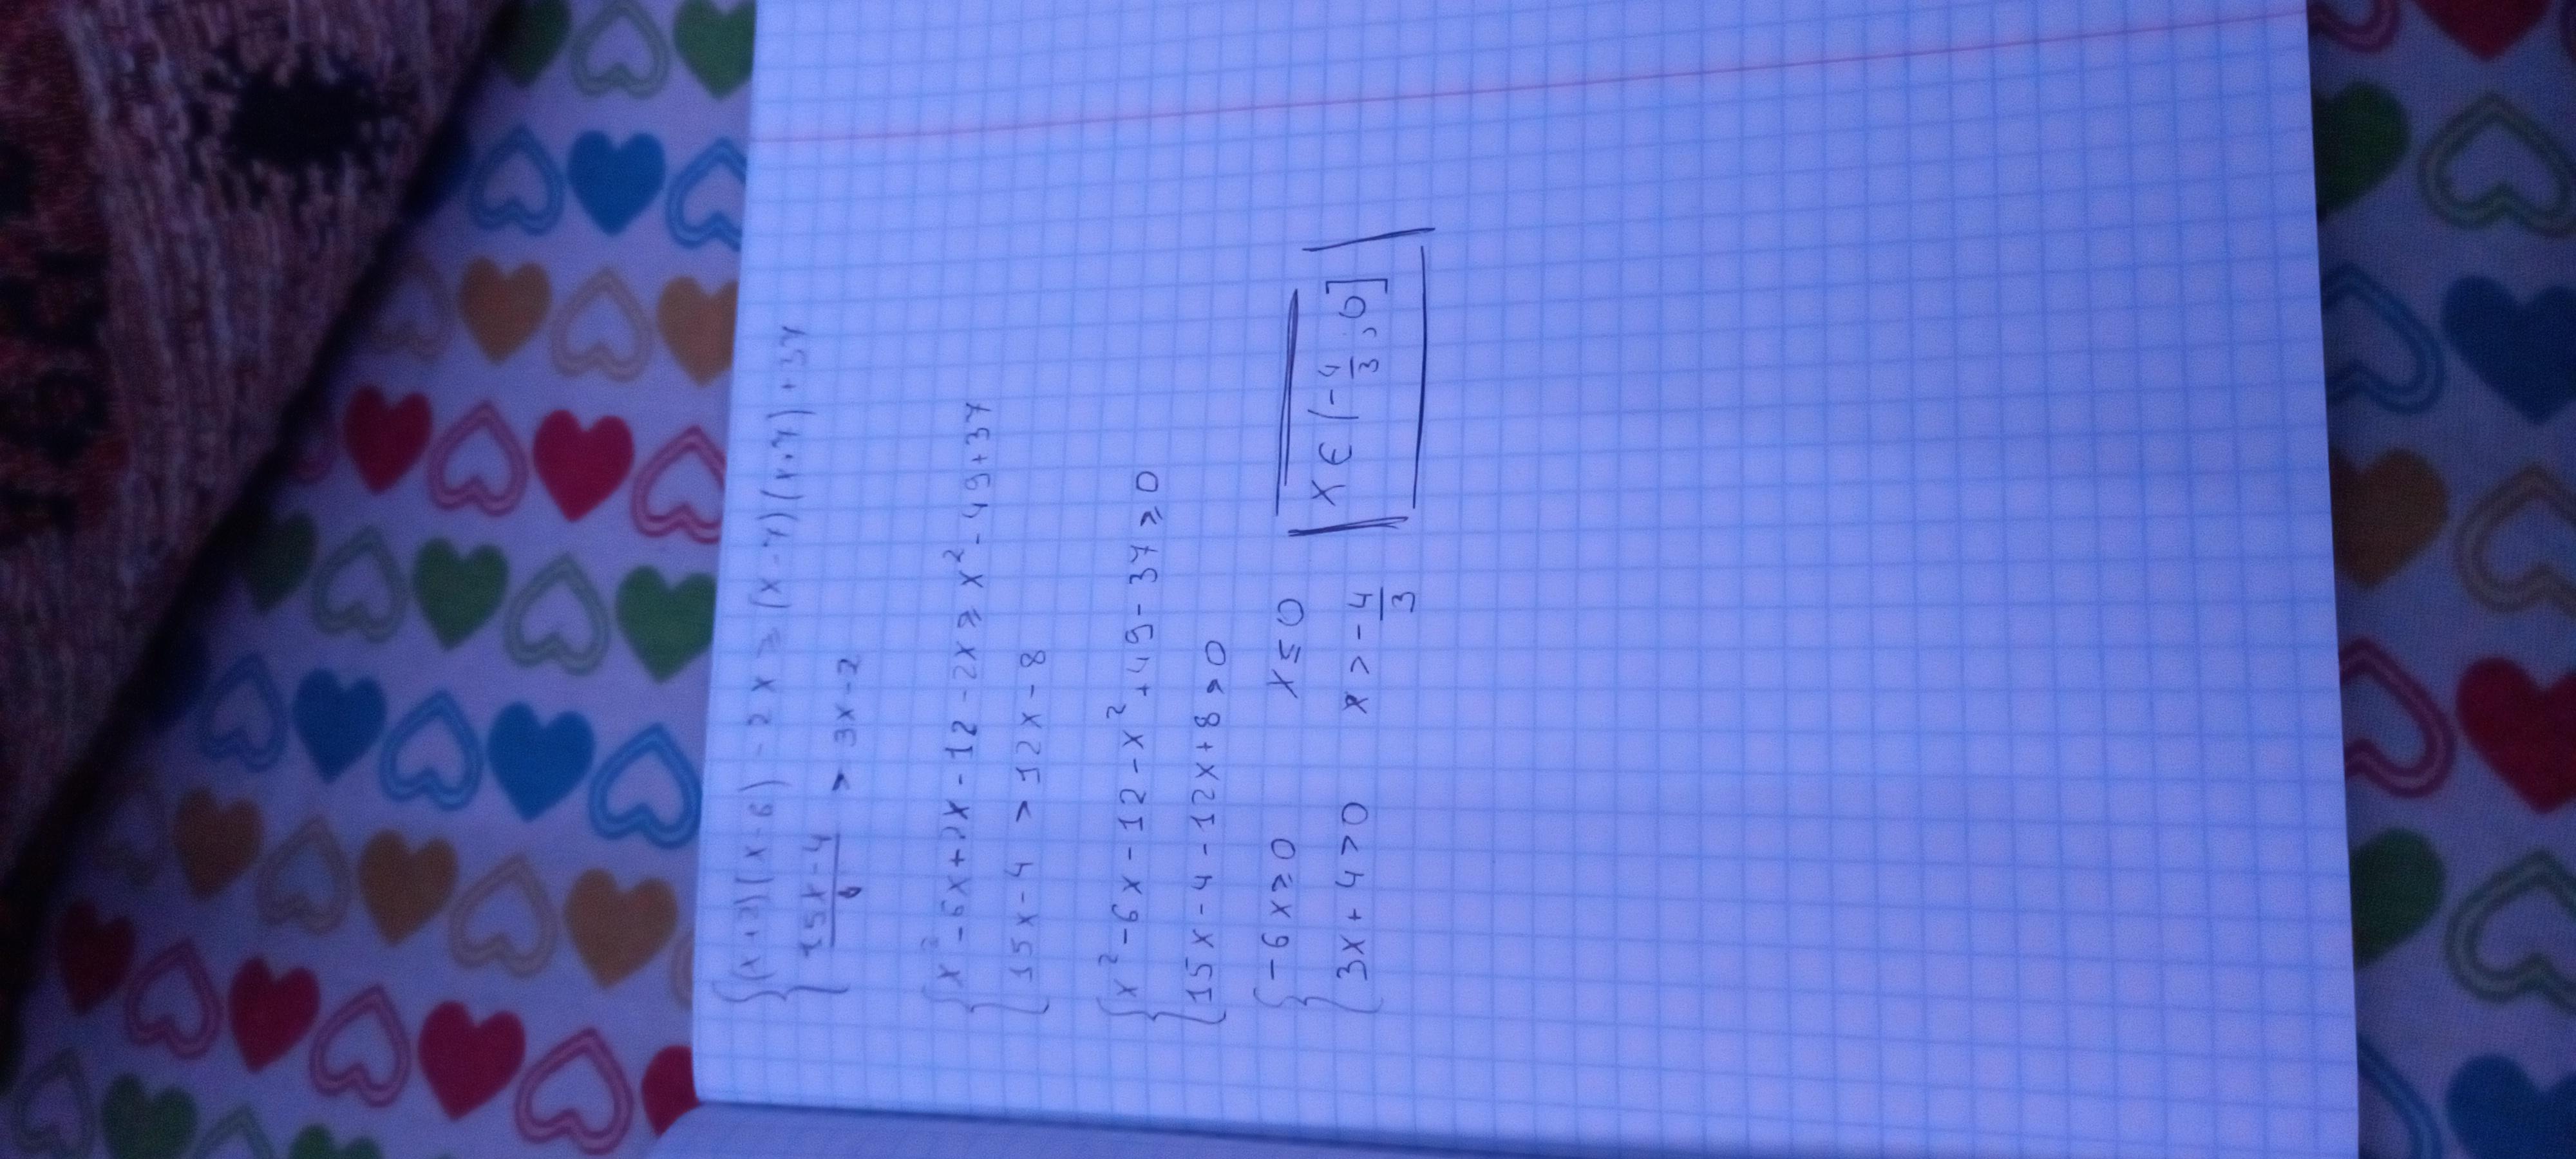 {(x+2)(x-6) - 2x ≥ (x-7)(x+7)+37
{15x-4/4 > 3x-2
{x² - 6x + 2x - 12 - 2x ≥ x² - 49 + 37
{15x - 4 > 12x - 8
{x² - 6x - 12 - x² + 49 - 37 ≥ 0
{15x - 4 - 12x + 8 > 0
{-6x ≥ 0 x ≤ 0
{3x + 4 > 0 x > -4/3
x ∈ (-4/3; 0]